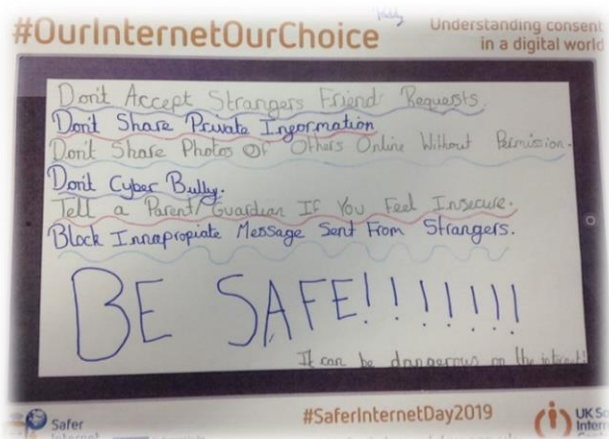 #OurInternetOurChoice
Understanding consent
in a digital world
Don't Accept Strangers Friend Requests.
Don't Share Private Ingormation
Don't Share Photos Of Others Online Without Permission.
Don't Cyber Bully.
Tell a Parent/Guardian If You Feel Insecure.
Block Innapropiate Message Sent From Strangers.
BE SAFE!!!!!!!!
It can be dangerous on the internet!
Safer
Internet
#SaferInternetDay2019
UK Sa
Intern